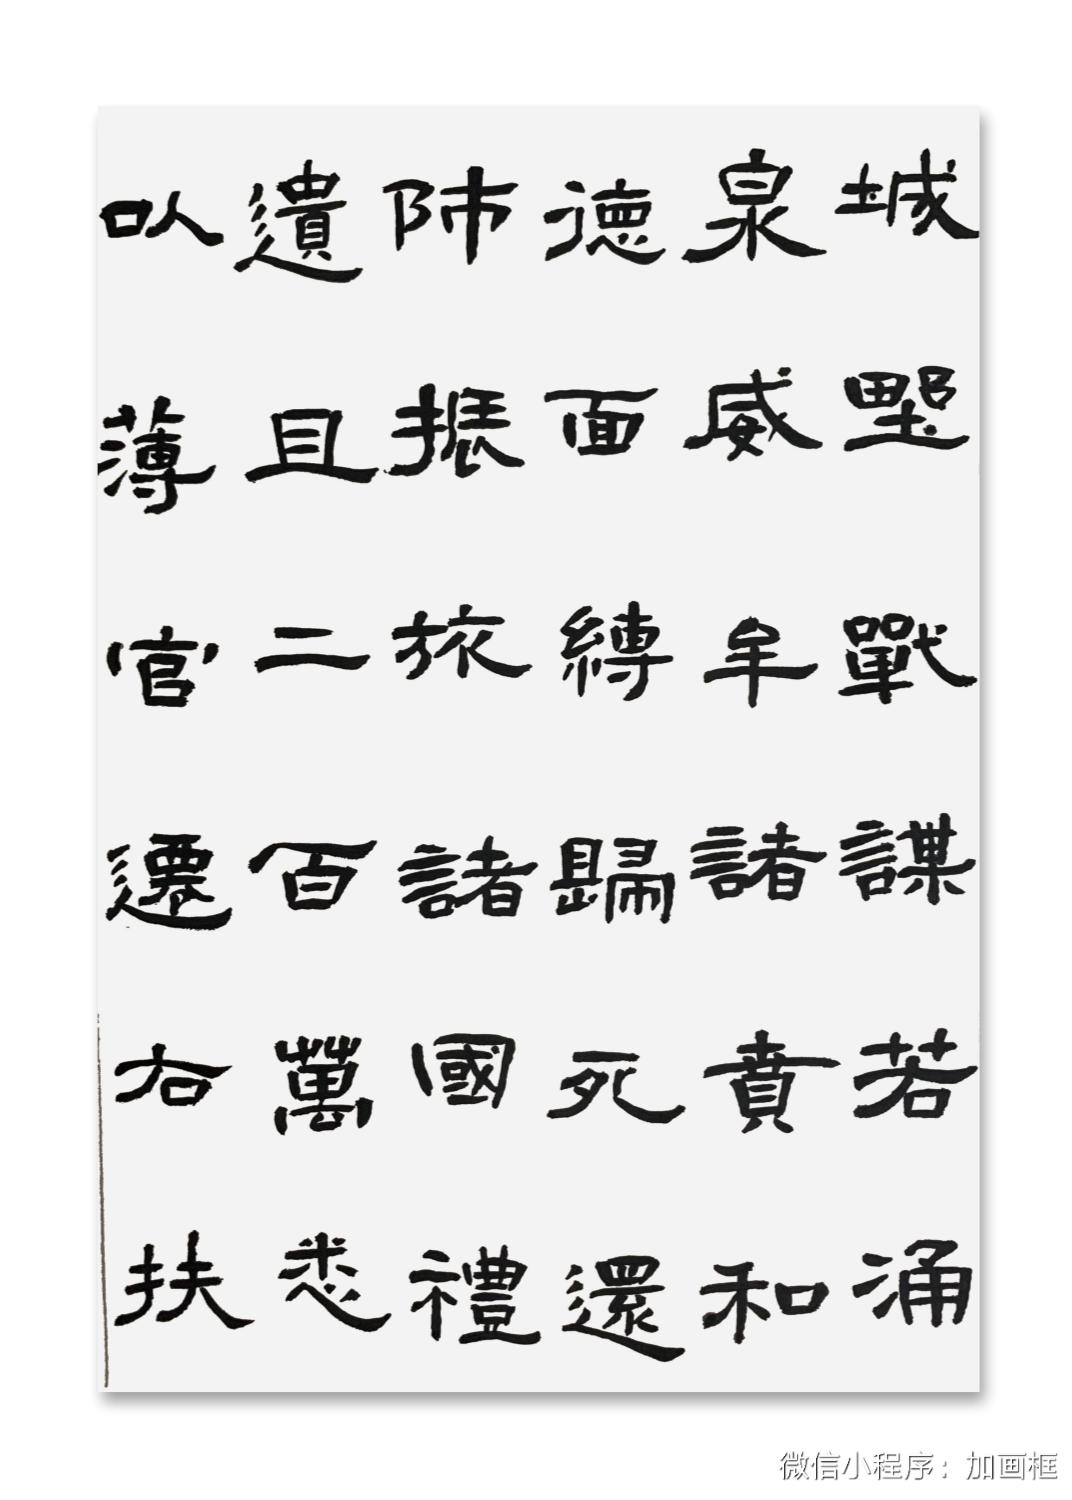 城野戰謀若涌
泉威牟諸賁和
德面縛歸死還
師振旅諸國禮
遺且二百萬悉
以薄官遷右扶
微信小程序：加画框